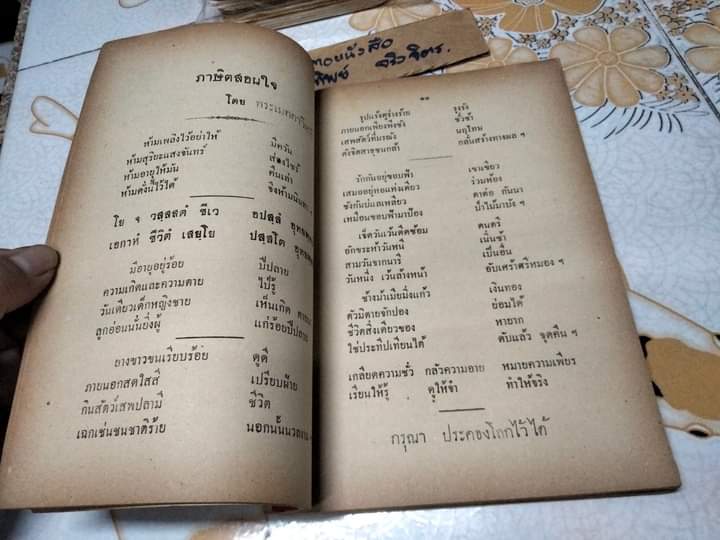 ภาษิตสอนใจ
โดย
ห้ามเพลิงไว้อย่าให้ มีควัน
ห้ามสุริยะแสงจันทร์ ส่องไซร้
ห้ามอายุให้มัน คืนเล่า
ห้ามดั่งนี้ไว้ได้ จึงห้ามนินทา ฯ
โย จ วสฺสสตํ ชีเว อปสฺสํ
เอกาหํ ชีวิตํ เสยฺโย ปสฺสโต
มีอายุอยู่ร้อย ปีปลาย
ความเกิดและความตาย ไป่รู้
วันเดียวเด็กหญิงชาย เห็นเกิด
ลูกอ่อนนั้นยิ่งผู้ แก่ร้อยปีปลาย
ยางขาวขนเรียบร้อย ดูดี
ภายนอกสดใสสี เปรียบฝ้าย
กินสัตว์เสพปลามี ชีวิต
เฉกเช่นชนชาติร้าย นอกนั้นนวลงาม
รูปแร้งดูร่างร้าย รุงรัง
ภายนอกเพียงพึงชัง ชั่วช้า
เสพสัตว์ที่มรณัง นฤโทษ
ดังจิตสาธุชนกล้า กลั่นสร้างทางผล ฯ
รักกันอยู่ขอบฟ้า เขาเขียว
เสมออยู่หอแห่งเดียว ร่วมห้อง
ชังกันบ่แลเหลียว ตาต่อ กันนา
เหมือนขอบฟ้ามาป้อง ป่าไม้มาบัง ฯ
เจ็ดวันเว้นดีดซ้อม ดนตรี
อักขระห้าวันหนี เนิ่นช้า
สามวันจากนารี เป็นอื่น
วันหนึ่ง เว้นล้างหน้า อับเศร้าศรีหมอง ฯ
ช้างม้าเมียมิ่งแก้ว เงินทอง
ตัวมิตายจักปอง ย่อมได้
ชีวิตสิ่งเดียวของ หายาก
ใช่ประทีปเทียนได้ ดับแล้ว จุดคืน ฯ
เกลียดความชั่ว กลัวความอาย หมายความเพียร
เรียนให้รู้ ดูให้จำ ทำให้จริง
กรุณา ประคองโลกไว้ได้